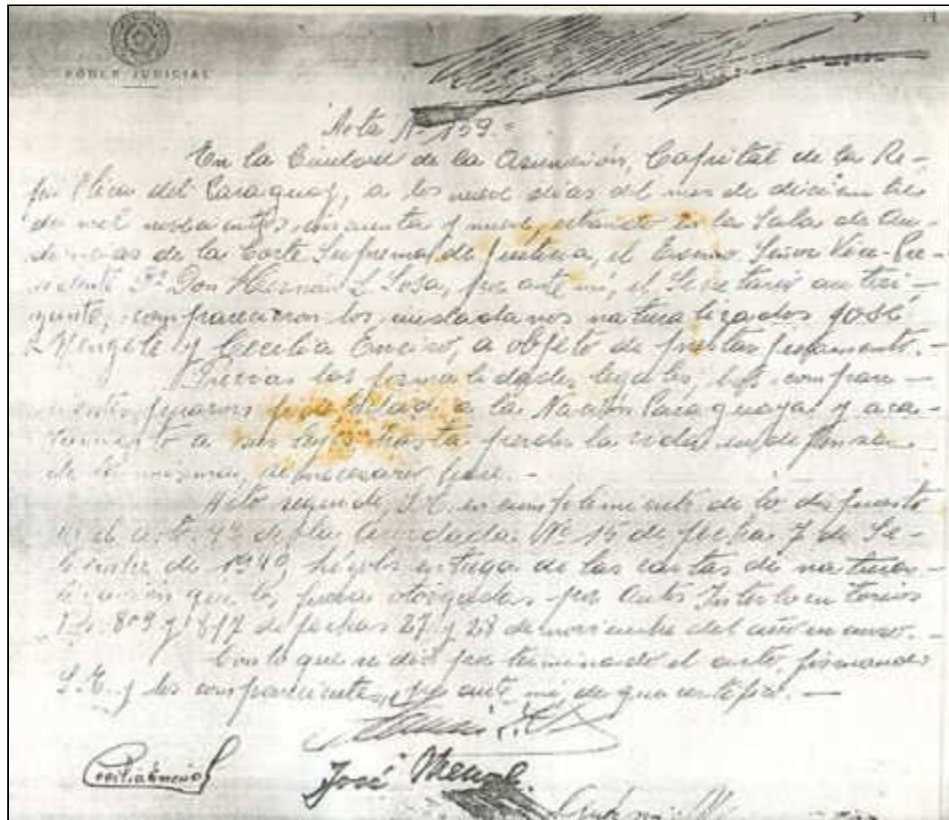 PODER JUDICIAL
Acta Nº 159.=
En la Ciudad de la Asunción, Capital de la Re-
pública del Paraguay, a los nueve días del mes de diciembre
de mil novecientos cincuenta y nueve, estando en la Sala de Au-
diencias de la Corte Suprema de Justicia, el Excmo. Señor Vice-Pre-
sidente Don Hernán L. Sosa, por ante mí, el Secretario autori-
zante, comparecieron los ciudadanos naturalizados José
Mengele y Cecilia Enciso, a objeto de prestar juramento.-
Previas las formalidades legales, los compare-
cientes juraron fidelidad a la Nación Paraguaya y aca-
tamiento a sus leyes hasta perder la vida en defensa
de la misma, si necesario fuere.-
Acto seguido, S.E. en cumplimiento de lo dispuesto
en el art. 4º de la Acordada Nº 15 de fecha 7 de Se-
tiembre de 1940, hízoles entrega de las cartas de natura-
lización que les fueran otorgadas por Autos Interlocutorios
809 y 817 de fechas 27 y 28 de noviembre del año en curso.-
Con lo que se dió por terminado el acto, firmando
S.E. y los comparecientes, por ante mí de que certifico.-
Cecilia Enciso
José Mengele